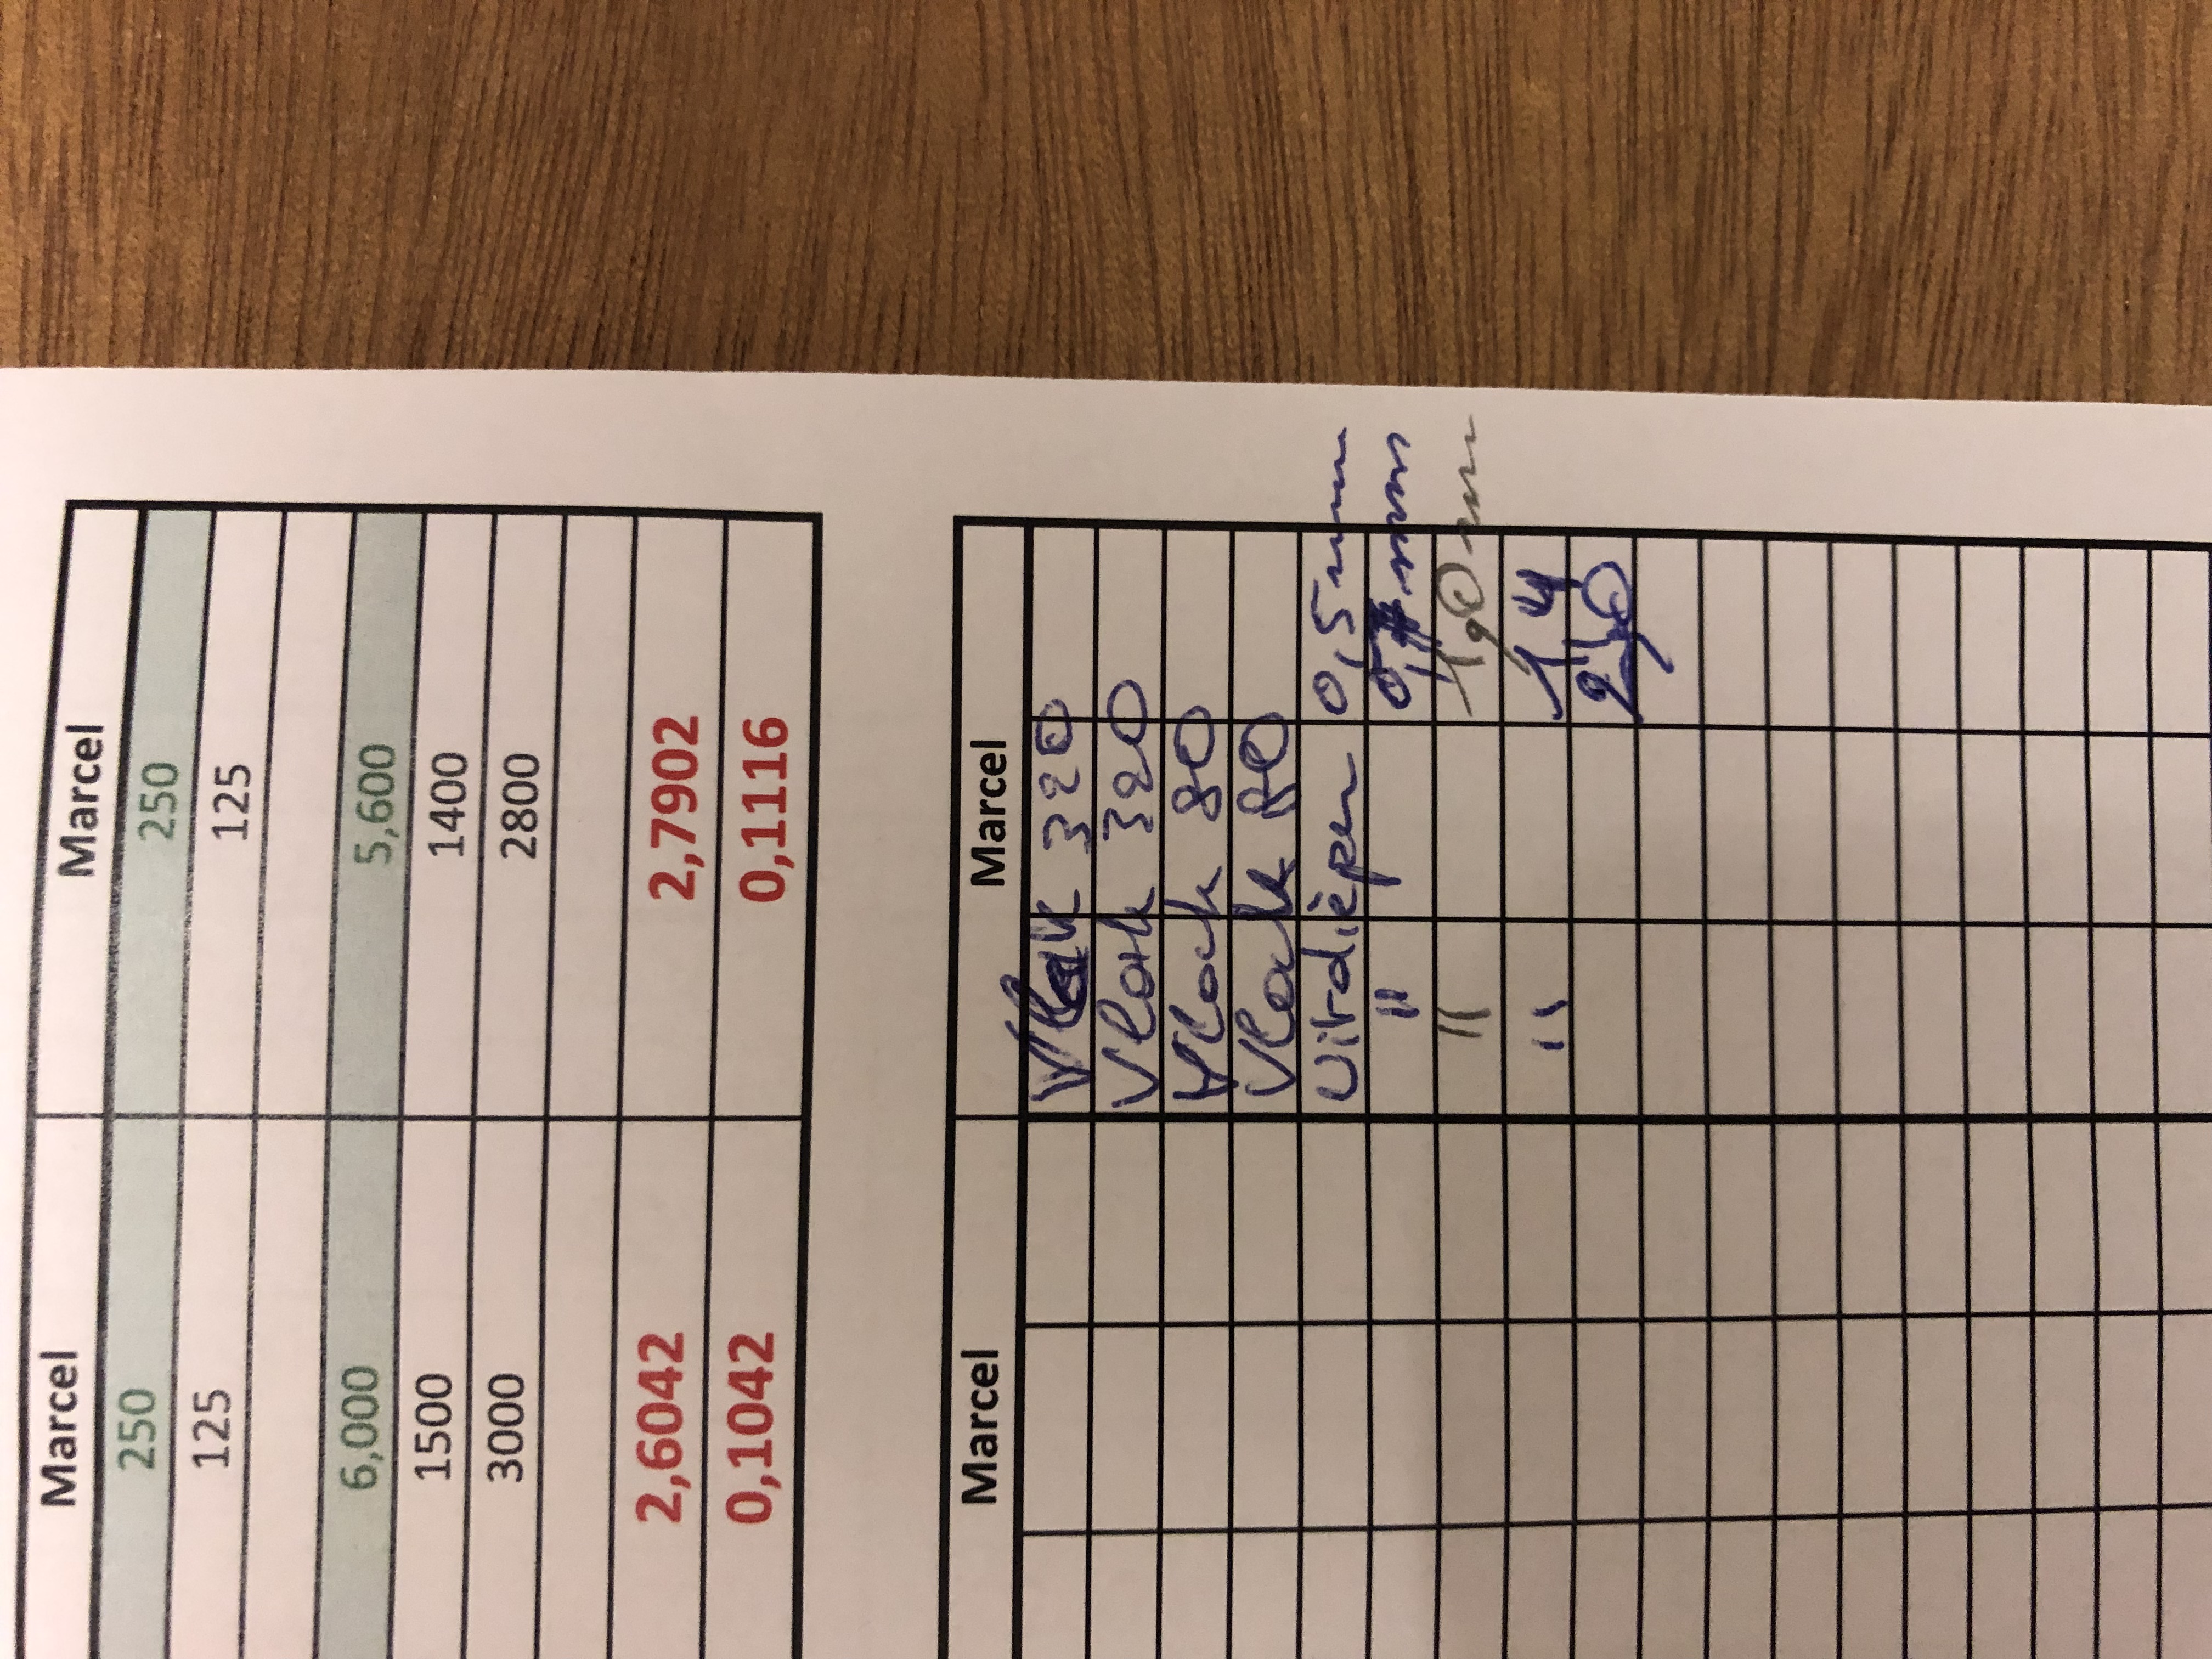 Marcel Marcel
250 250
125 125
6,000 5,600
1500 1400
3000 2800
2,6042 2,7902
0,1042 0,1116
Marcel Marcel
Vlak 320
Vlak 320
Vlak 80
Vlak 80
Uitdiepen 0,5mm
" 0,7mm
" 1,0mm
" 1,4
2,0